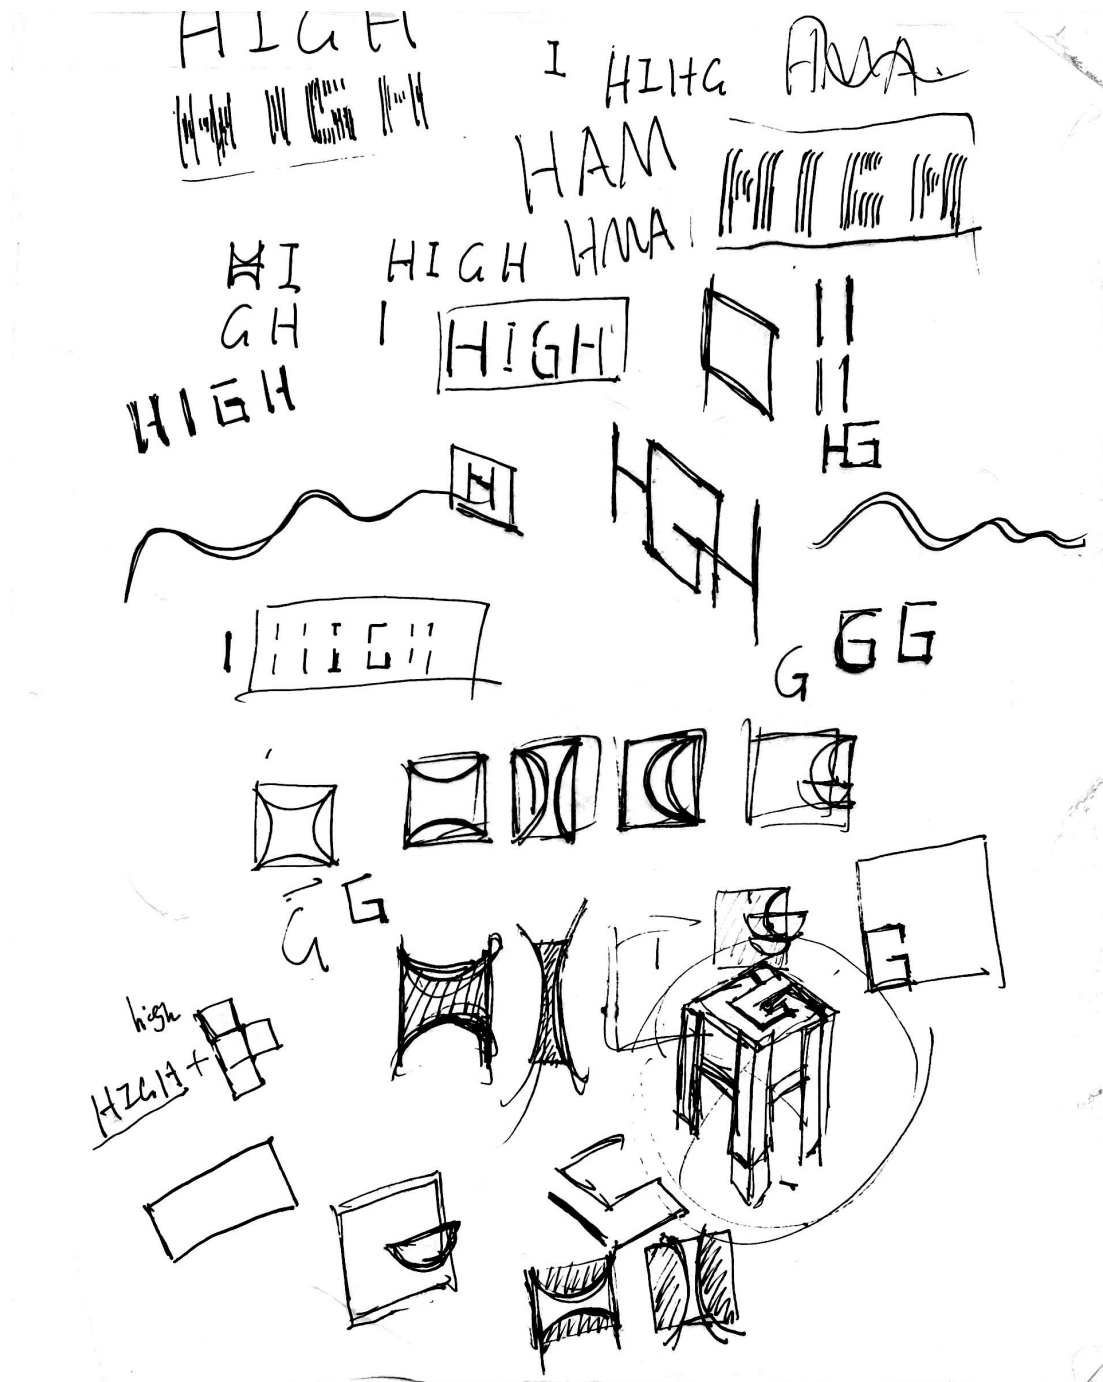 HIGH
HIGH
I
HIHG
HAM
HIGH
HMA
HI
GH
HIGH
I
HIGH
HIGH
HG
H
HGH
I
HIGH
G G G
G
G
G
G
high
HIGH+